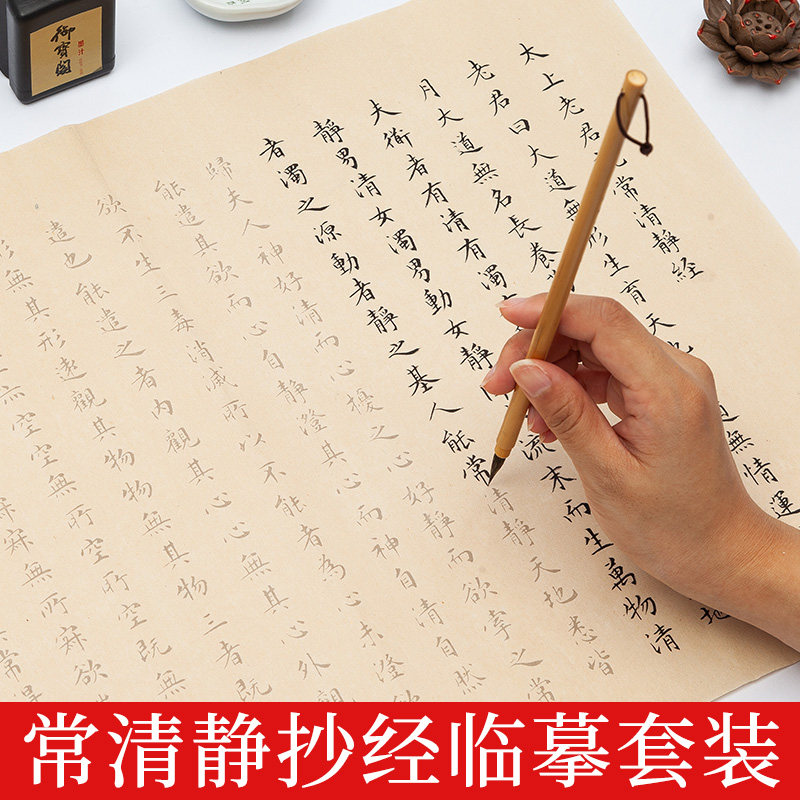 御寶閣
墨汁
太上老君常清靜經
老君曰大道無形生育天無情運
月大道無名長養地
夫衜者有清有濁
靜男清女濁男動女靜流末而生萬物清
者濁之源動者靜之基人能常清靜天地悉皆
歸夫人神好清而心擾之心好靜而欲牽之常
能遣其欲而心自靜澄其心而神自清自然
欲不生三毒消滅所以不能者為心未澄
遣也能遣之者內觀其心心無其心外觀
形無其形遠觀其物物無其物三者既
空空無所空所空既無
寂無所寂欲
常清静抄经临摹套装